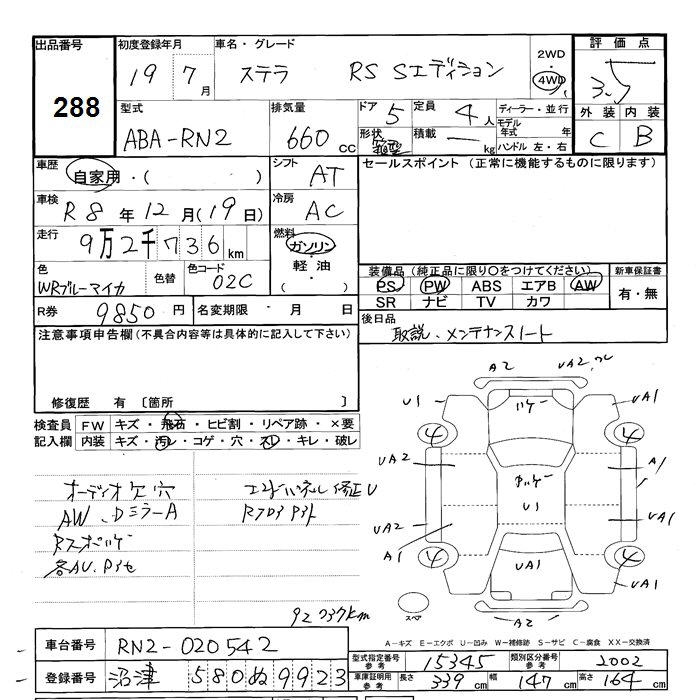 出品番号 初度登録年月 車名・グレード 2WD 評価点
288 19 7月 ステラ RS Sエディション 4WD 3.5
型式 排気量 ドア 5 定員 4人 ディーラー・並行 外装 内装
ABA-RN2 660cc 形状 箱型 積載 ー kg モデル年式 年 C B
ハンドル 左・右
車歴 自家用・( ) シフト AT セールスポイント (正常に機能するものに限ります)
車検 R8年12月(19日) 冷房 AC
走行 9万2千736km 燃料 ガソリン・軽油・( )
色 WRブルーマイカ 色替 色コード 02C
装備品 (純正品に限り○をつけてください) 新車保証書
PS PW ABS エアB AW 有・無
SR ナビ TV カワ
R券 9850円 名変期限 ・ 月 日
後日品 取説、メンテナンスノート
注意事項申告欄 (不具合内容等は具体的に記入して下さい)
修復歴 有 〔箇所 〕
検査員 FW キズ・飛石・ヒビ割・リペア跡・×要
記入欄 内装 キズ・汚レ・コゲ・穴・スレ・キレ・破レ
オーディオ欠 穴
AW、DミラーA
エンドパネル修正U
92737km
A2 UA2
U1 UA1
4 4
UA2 A1
U1
UA2 UA1
A1
4 4
UA1 UA1
A2
スペア
A-キズ E-エクボ U-凹み W-補修跡 S-サビ C-腐食 XX-交換済
車台番号 RN2-020542
登録番号 沼津 580 ぬ 9923
型式指定番号 参考 15345 類別区分番号 参考 2002
車庫証明用 参考 長さ 339cm 幅 147cm 高さ 164cm